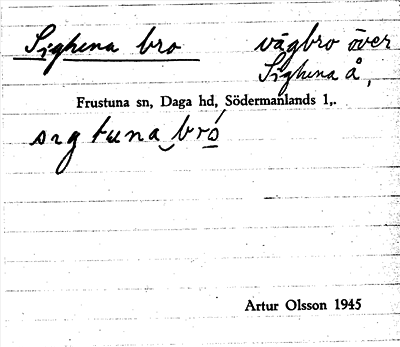 Sigtuna bro vägbro över
Sigtuna å,
Frustuna sn, Daga hd, Södermanlands l,.
sıgtuna‿bró
Artur Olsson 1945